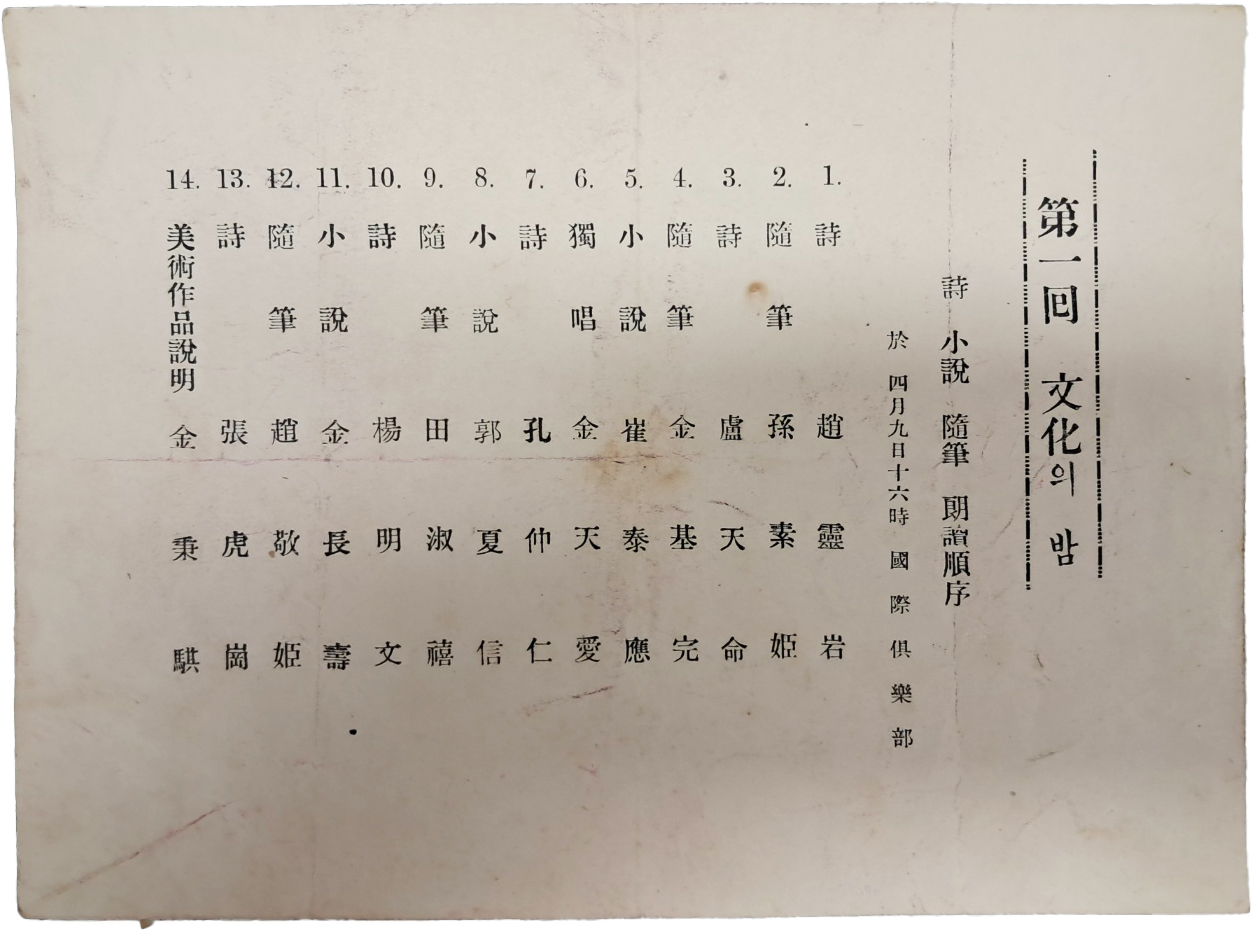 第一回 文化의 밤
詩 小說 隨筆 朗讀順序
於 四月九日十六時 國際俱樂部
1. 詩 趙靈岩
2. 隨筆 孫素姬
3. 詩 盧天命
4. 隨筆 金基完
5. 小說 崔泰應
6. 獨唱 金天愛
7. 詩 孔仲仁
8. 小說 郭夏信
9. 隨筆 田淑禧
10. 詩 楊明文
11. 小說 金長壽
12. 隨筆 趙敬姬
13. 詩 張虎崗
14. 美術作品說明 金秉騏